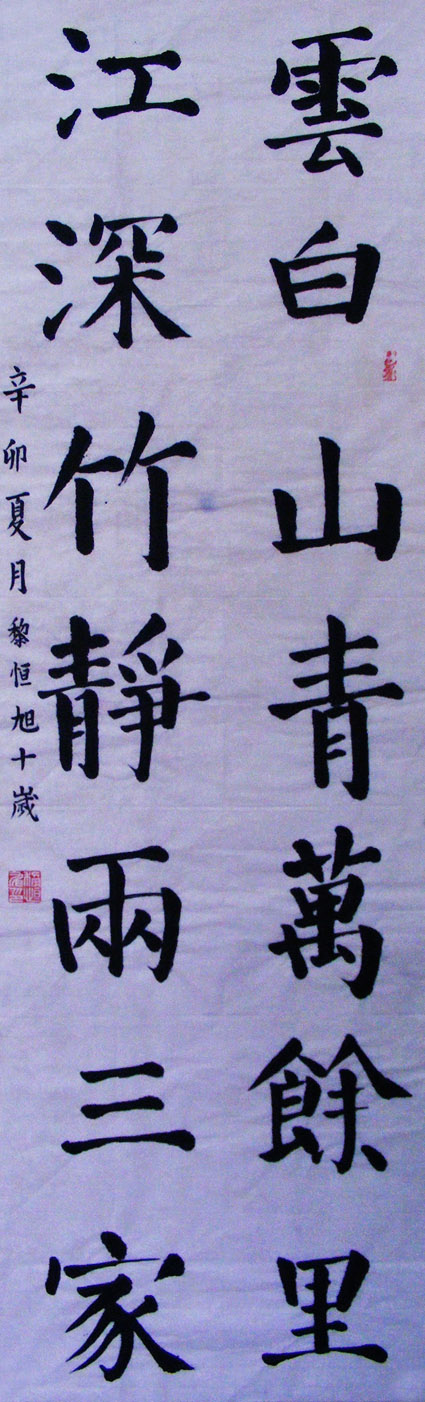 雲白山青萬餘里
江深竹靜兩三家
辛卯夏月黎恒旭十歲